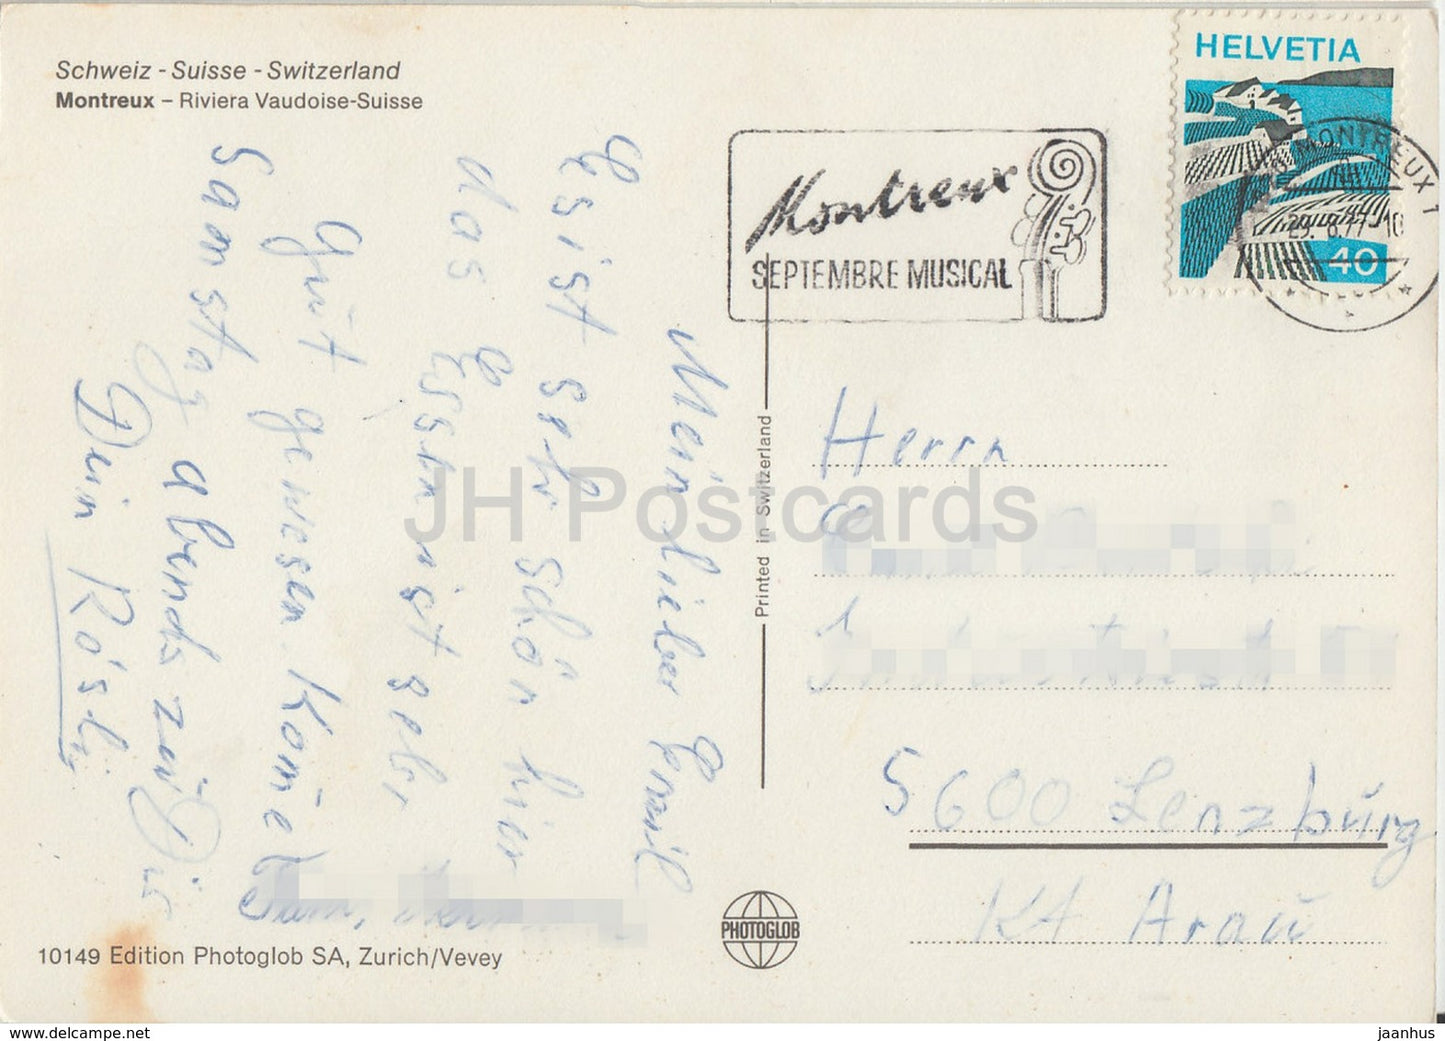 Schweiz - Suisse - Switzerland
Montreux – Riviera Vaudoise-Suisse
HELVETIA
40
MONTREUX 1
8.77-10
Montreux
SEPTEMBRE MUSICAL
Mein lieber Emil
Es ist sehr schön hier
das Essen ist sehr
gut gewesen. Kome
Samstag abends zu Dir
Dein Rösli
Printed in Switzerland
Herrn
5600 Lenzburg
Kt Arau
PHOTOGLOB
10149 Edition Photoglob SA, Zurich/Vevey
JH Postcards
www.delcampe.net
jaanhus